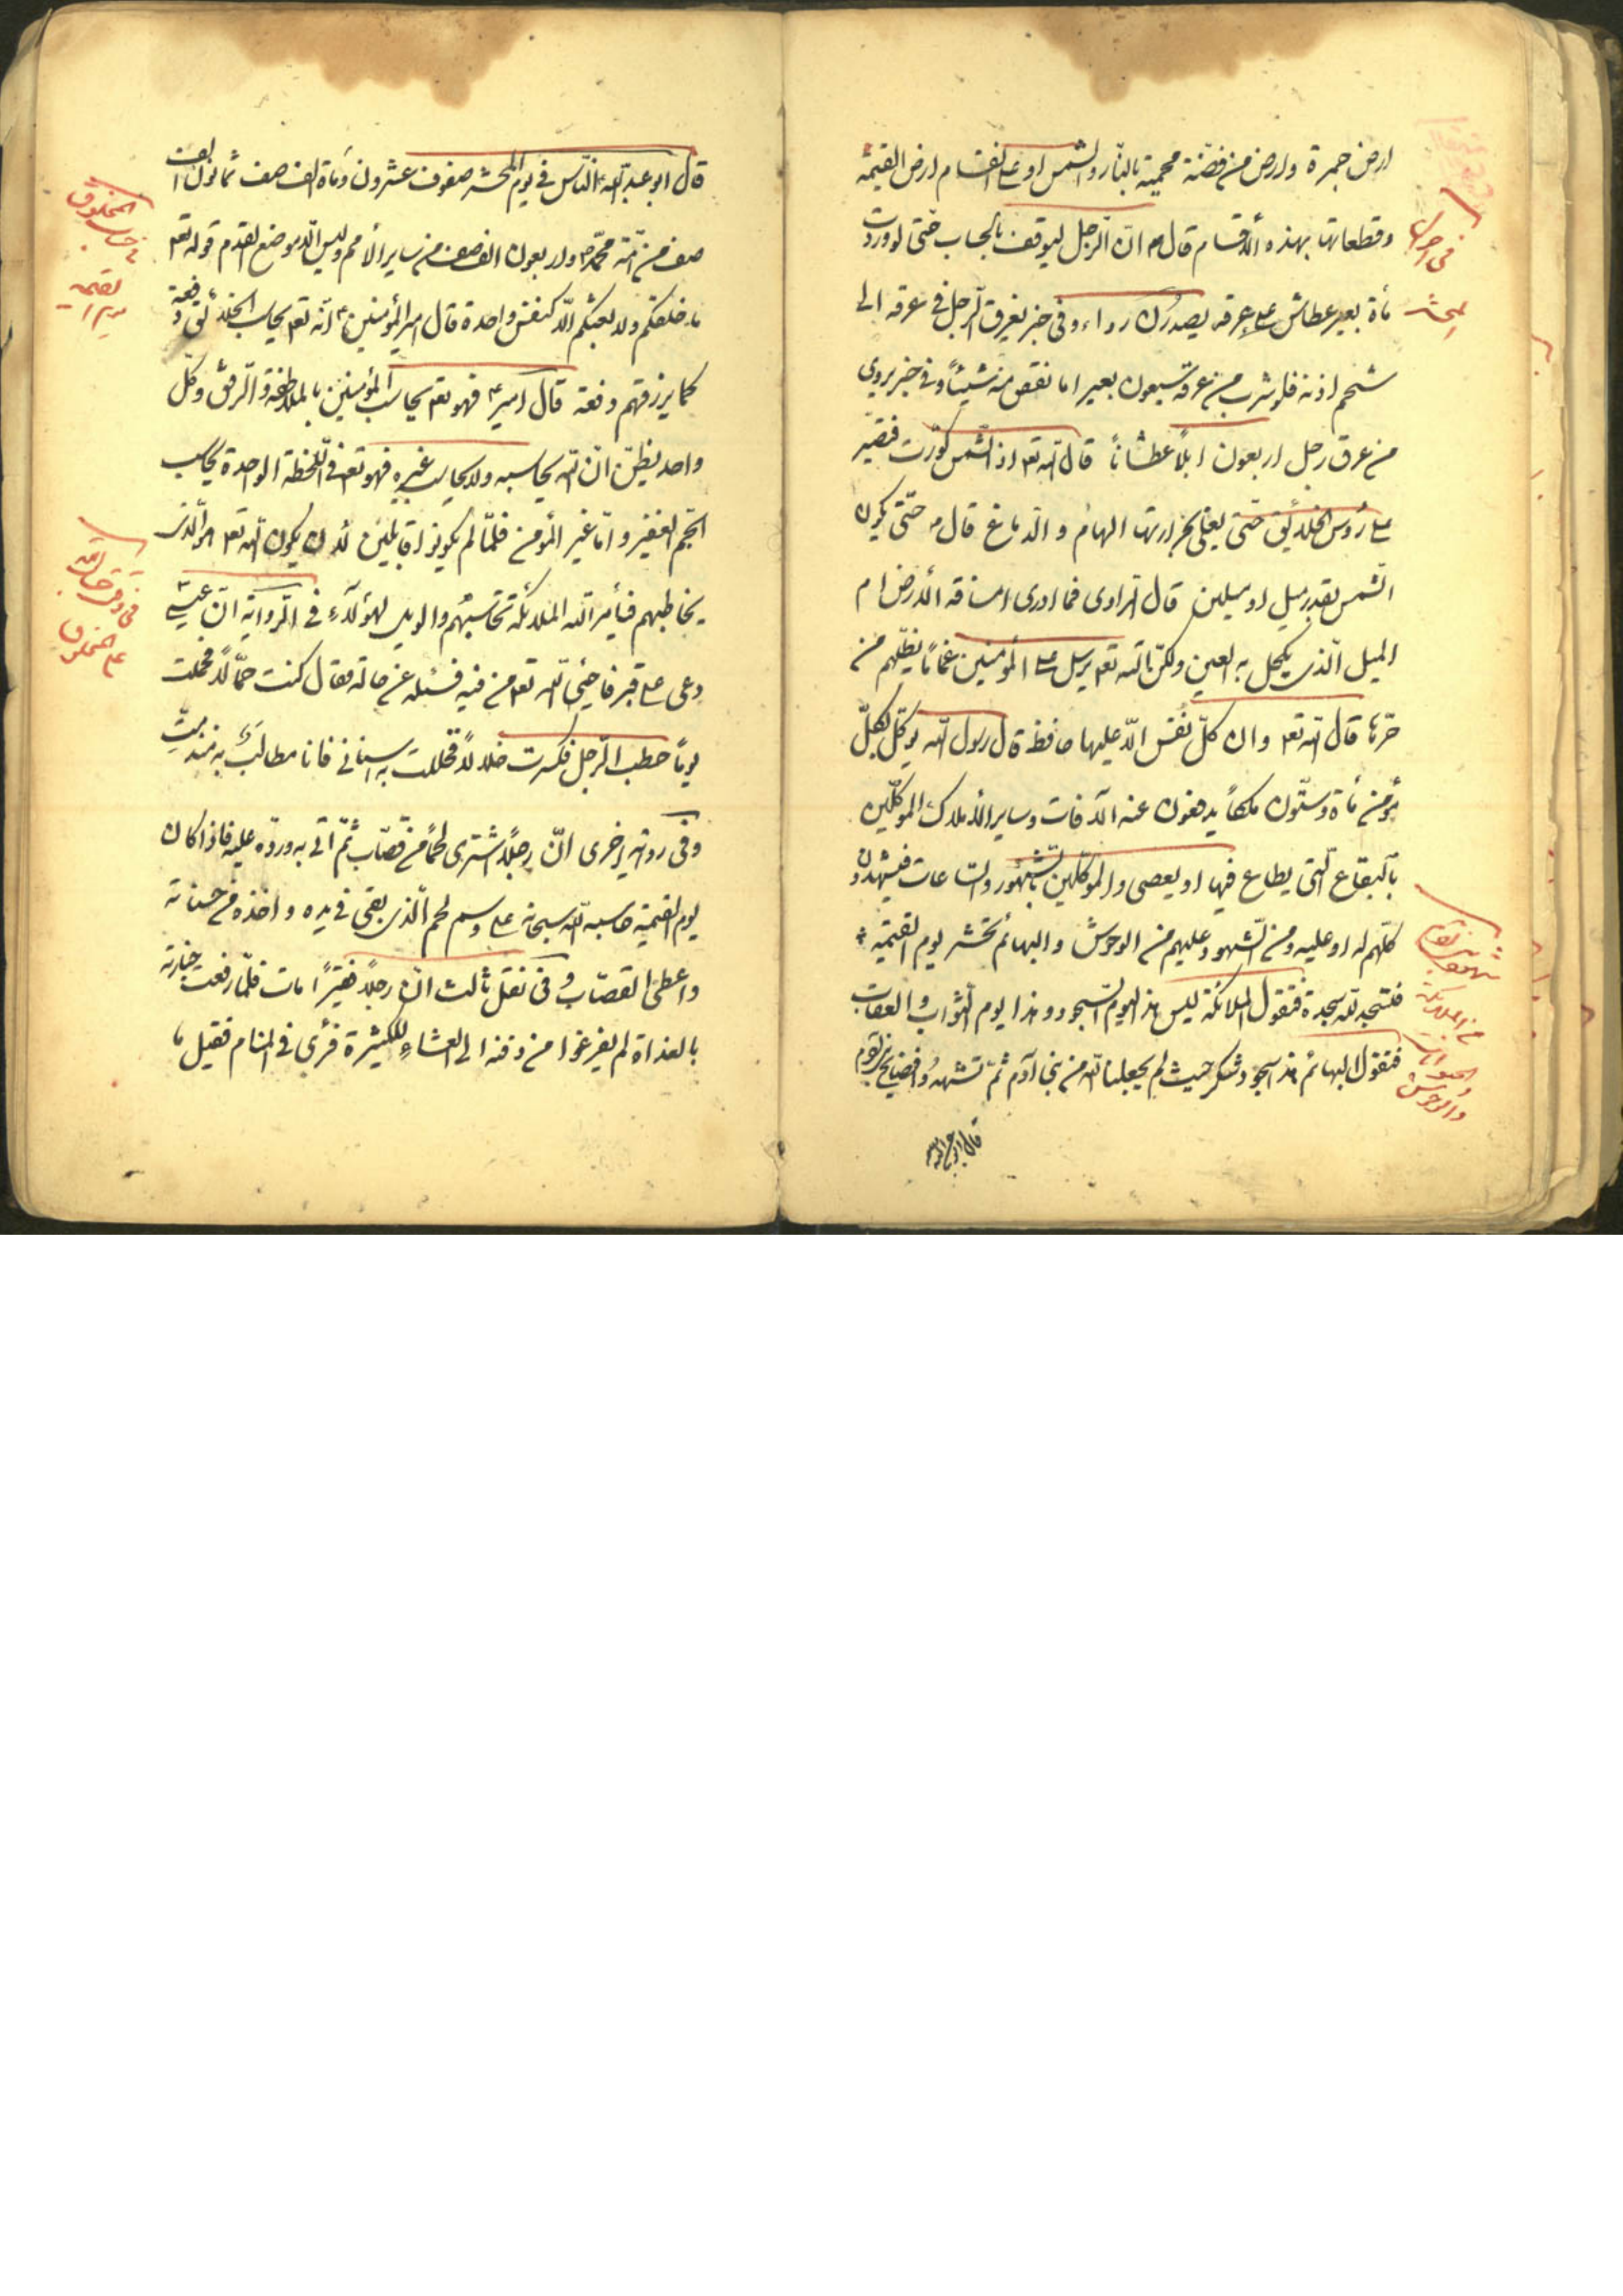 ارض جمرة وارض من فضّة محمية بالنّار والشمس او على انقسام ارض القيمة
وقطعاتها بهذه الأقسام قال ان الرّجل ليوقف بالحساب حتّى لو وردت
مأة بعير عطاش على عرقه يصدرن رواء وفى خبر يغرق الرّجل فى عرقه الى
شحم اذنه فلو شرب من عرقه سبعون بعيرا ما نقص منه شيئاً وفى خبر يروى
من عرق رجل اربعون ابلاً عطشاناً قال الله تعه اذا الشّمس كوّرت فتصير
على رؤس الخلايق حتّى يغلى بحرارتها الهام والدماغ قال حتّى يكون
الشّمس بقدر ميل او ميلين قال الرّاوى فما ادرى امسافة الأرض ام
الميل الّذى يكحل به العين ولكنّ الله تعه يرسل على المؤمنين غماماً يظلّهم من
حرّها قال الله تعه وان كلّ نفس الّا عليها حافظ قال رسول الله يوكّل بكلّ
مؤمن مأة وستّون ملكاً يدفعون عنه الآفات وساير الأملاك الموكّلين
بالبقاع الّتى يطاع فيها او يعصى والموكّلين بالشّهور والسّاعات فيشهدون
كلّهم له او عليه ومن الشّهود عليهم من الوحوش والبهائم تحشر يوم القيمة
فتسجد لله سجدة فتقول الملائكة ليس هذا يوم السّجود وهذا يوم الثّواب والعقاب
فتقول البهائم هذا سجود شكر حيث لم يجعلنا الله من بنى آدم ثمّ تشهد فضايح بنى آدم
قال ابو عبد الله
فى احوال
المحشر
شهود
من الملائكة
والحيوانات
والوحوش
قال ابو عبد الله النّاس فى يوم المحشر صفوف عشرون ومأة الف صف ثمانون الف
صف من امّة محمّد واربعون الف صف من ساير الأمم وليس الّا موضع القدم قوله تعه
ما خلقكم ولا بعثكم الّا كنفس واحدة قال امير المؤمنين انّه تعه يحاسب الخلائق دفعة
كما يرزقهم دفعة قال امير فهو تعه يحاسب المؤمنين بالملاطفة والرّفق وكلّ
واحد يظنّ انّ الله يحاسبه ولا يحاسب غيره فهو تعه فى اللّحظة الواحدة يحاسب
الجّم الغفير وامّا غير المؤمن فلمّا لم يكونوا قابلين لأن يكون الله تعه هو الّذى
يخاطبهم فيأمر الله الملائكة تحاسبهم والويل لهؤلآء فى الرّواية انّ عيسى
دعى على قبر فاحيى الله تعه من فيه فسئله عن حاله فقال كنت حمّالاً فحملت
يوماً حطب الرّجل فكسرت خلالاً فخللت به اسنانى فانا مطالب به منذ متّ
وفى رواية اخرى انّ رجلاً اشترى لحماً من قصّاب ثمّ اتى به وردّه عليه فاذا كان
يوم القيمة حاسبه الله سبحانه على وسم لحم الّذى بقى فى يده واخذه من حسناته
واعطى القصّاب وفى نقل ثالث انّ رجلاً فقيراً مات فلمّا رفعت جنازته
بالغداة لم يفرغوا من دفنه الى العشاء للكثيرة فرأى فى المنام فقيل ما
فى حساب الخلايق
فى دقّة حساب الله
على المخلوق